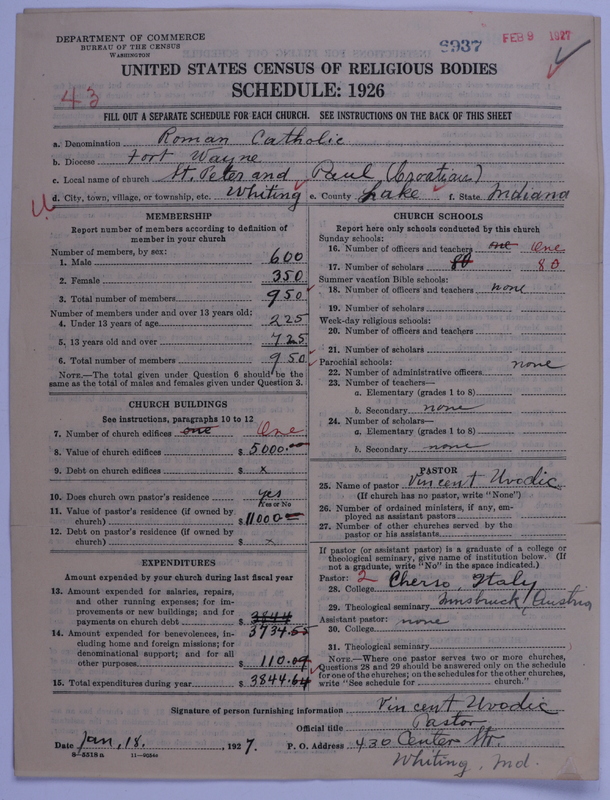 DEPARTMENT OF COMMERCE
BUREAU OF THE CENSUS
WASHINGTON
S937
FEB 9 1927
UNITED STATES CENSUS OF RELIGIOUS BODIES
SCHEDULE: 1926
43
FILL OUT A SEPARATE SCHEDULE FOR EACH CHURCH. SEE INSTRUCTIONS ON THE BACK OF THIS SHEET
a. Denomination Roman Catholic
b. Diocese Fort Wayne
c. Local name of church St. Peter and Paul (Croatian)
d. City, town, village, or township, etc. Whiting e. County Lake f. State Indiana
MEMBERSHIP
Report number of members according to definition of
member in your church
Number of members, by sex:
1. Male 600
2. Female 350
3. Total number of members 950
Number of members under and over 13 years old:
4. Under 13 years of age 225
5. 13 years old and over 725
6. Total number of members 950
NOTE.—The total given under Question 6 should be the
same as the total of males and females given under Question 3.
CHURCH BUILDINGS
See instructions, paragraphs 10 to 12
7. Number of church edifices one One
8. Value of church edifices $ 5000.00
9. Debt on church edifices $ x
10. Does church own pastor's residence yes
Yes or No
11. Value of pastor's residence (if owned by
church) $ 11000
12. Debt on pastor's residence (if owned by
church) $ x
EXPENDITURES
Amount expended by your church during last fiscal year
13. Amount expended for salaries, repairs,
and other running expenses; for im-
provements or new buildings; and for
payments on church debt $ 3844
3734.55
14. Amount expended for benevolences, in-
cluding home and foreign missions; for
denominational support; and for all
other purposes $ 110.09
15. Total expenditures during year $ 3844.64
CHURCH SCHOOLS
Report here only schools conducted by this church
Sunday schools:
16. Number of officers and teachers one One
17. Number of scholars 80 80
Summer vacation Bible schools:
18. Number of officers and teachers none
19. Number of scholars
Week-day religious schools:
20. Number of officers and teachers
21. Number of scholars
Parochial schools: none
22. Number of administrative officers
23. Number of teachers—
a. Elementary (grades 1 to 8)
b. Secondary none
24. Number of scholars—
a. Elementary (grades 1 to 8)
b. Secondary none
PASTOR
25. Name of pastor Vincent Uvodic
(If church has no pastor, write "None")
26. Number of ordained ministers, if any, em-
ployed as assistant pastors
27. Number of other churches served by the
pastor or his assistants
If pastor (or assistant pastor) is a graduate of a college or
theological seminary, give name of institution below. (If
not a graduate, write "No" in the space indicated.)
Pastor: 2
28. College Cherso Italy
29. Theological seminary Innsbruck, Austria
Assistant pastor: none
30. College
31. Theological seminary
NOTE.—Where one pastor serves two or more churches,
Questions 28 and 29 should be answered only on the schedule
for one of the churches; on the schedules for the other churches,
write "See schedule for church."
Signature of person furnishing information Vincent Uvodic
Official title Pastor
Date Jan. 18. , 1927. P. O. Address 430 Center Str.
8—5518a
Whiting, Ind.